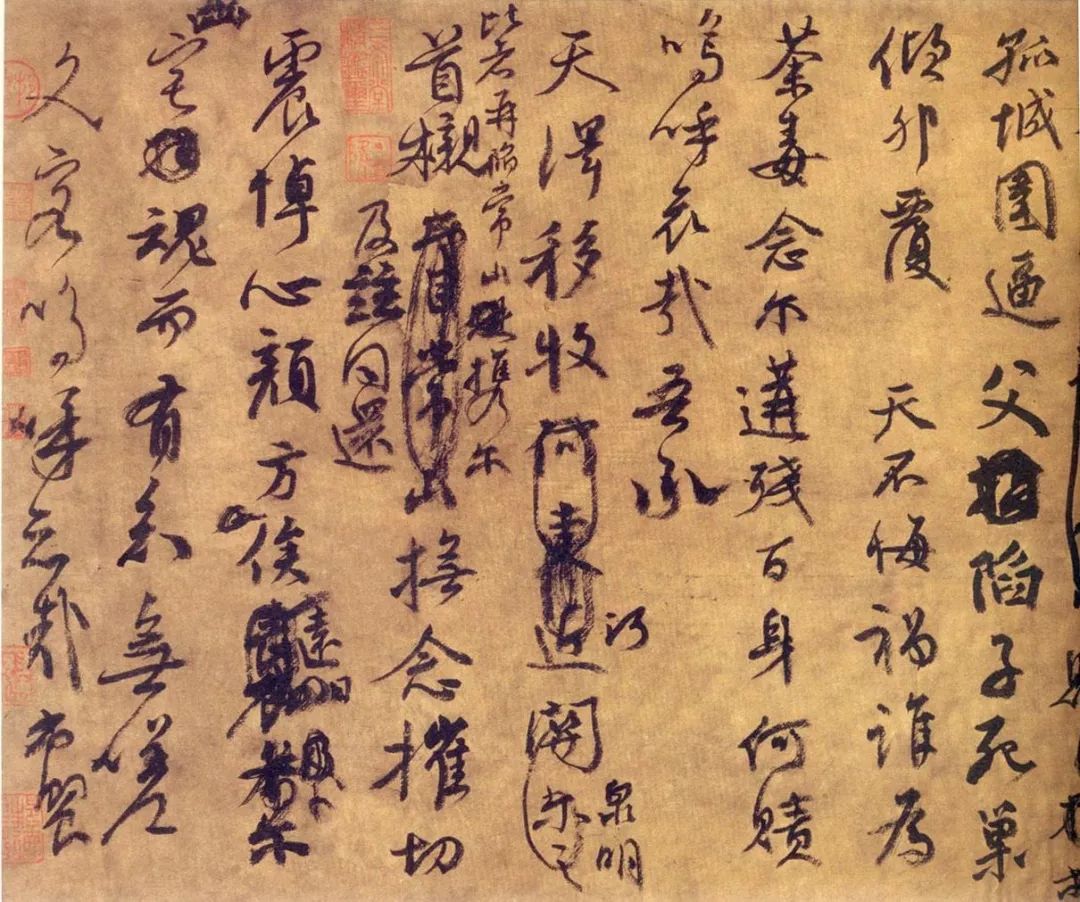 孤城圍逼父陷子死巢
傾卵覆 天不悔禍誰為
荼毒念尔遘殘百身何贖
嗚呼哀哉吾承
天澤移牧河東近河關尔之泉明
比者再陷常山攜尔
首櫬常山及茲同還撫念摧切
震悼心顏方俟遠日卜尔
幽宅魂而有知無嗟
久客嗚呼哀哉尚饗